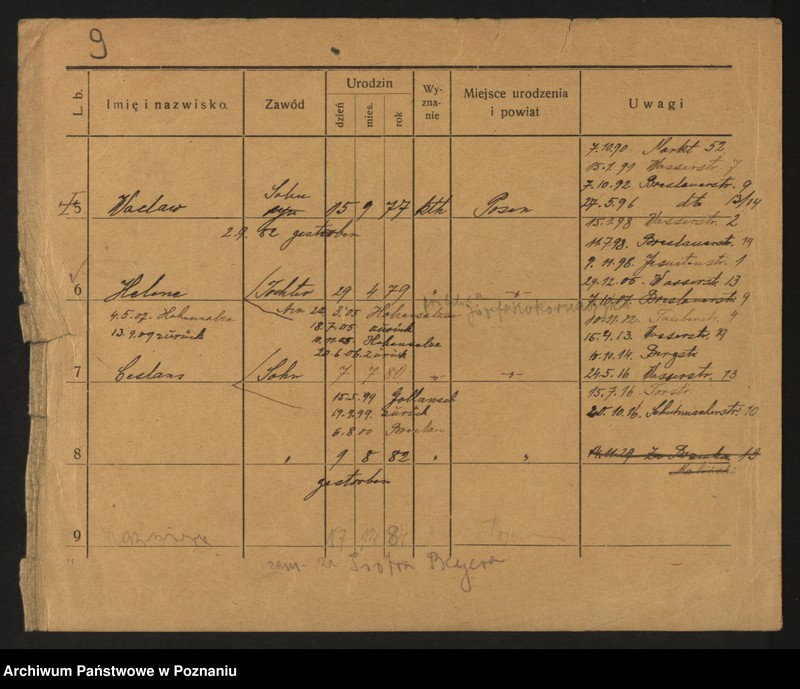 9
L. b. Imię i nazwisko. Zawód Urodzin dzień mies. rok Wy-zna-nie Miejsce urodzenia i powiat Uwagi
7.10.90. Markt 52
15.1.91 Wasserstr. 7
7.10.92 Breslauerstr. 9
5 Waclaw Sohn 15 9 77 kth Posen 24.5.96 dto 13/14
2.9.82 gestorben
15.1.98 Wasserstr. 2
Breslauerstr. 19
9.11.98. Jesuitenstr. 1
29.12.05. Wasserstr. 13
6 Helene Tochter 29 4 79 " -"- 7.10.07. Breslauerstr. 9
4.5.07. Hohensalza
22 3.05 Hohensalza
10.11.12. Taubenstr. 4
13.9.09 zurück
18.7.05 zurück
15.4.13. Wasserstr. 19
10.11.05. Hohensalza
20.6.06. zurück
Bergstr
7 Ceslaus Sohn 7 7 80 " -"- 24.5.16 Wasserstr. 13
15.5.99 Gollantsch
15.7.16 Torstr.
19.9.99. zurück
20.10.16. Schuhmacherstr. 10
6.8.00 Breslau
8 " 9 8 82 " "
gestorben
9 17 12
zam. za Piotra Beyera
Archiwum Państwowe w Poznaniu